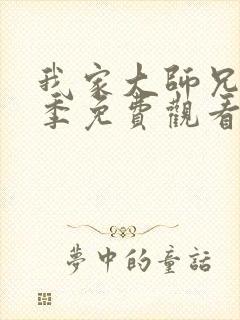 我家大師兄
季免費觀看
夢中的童話